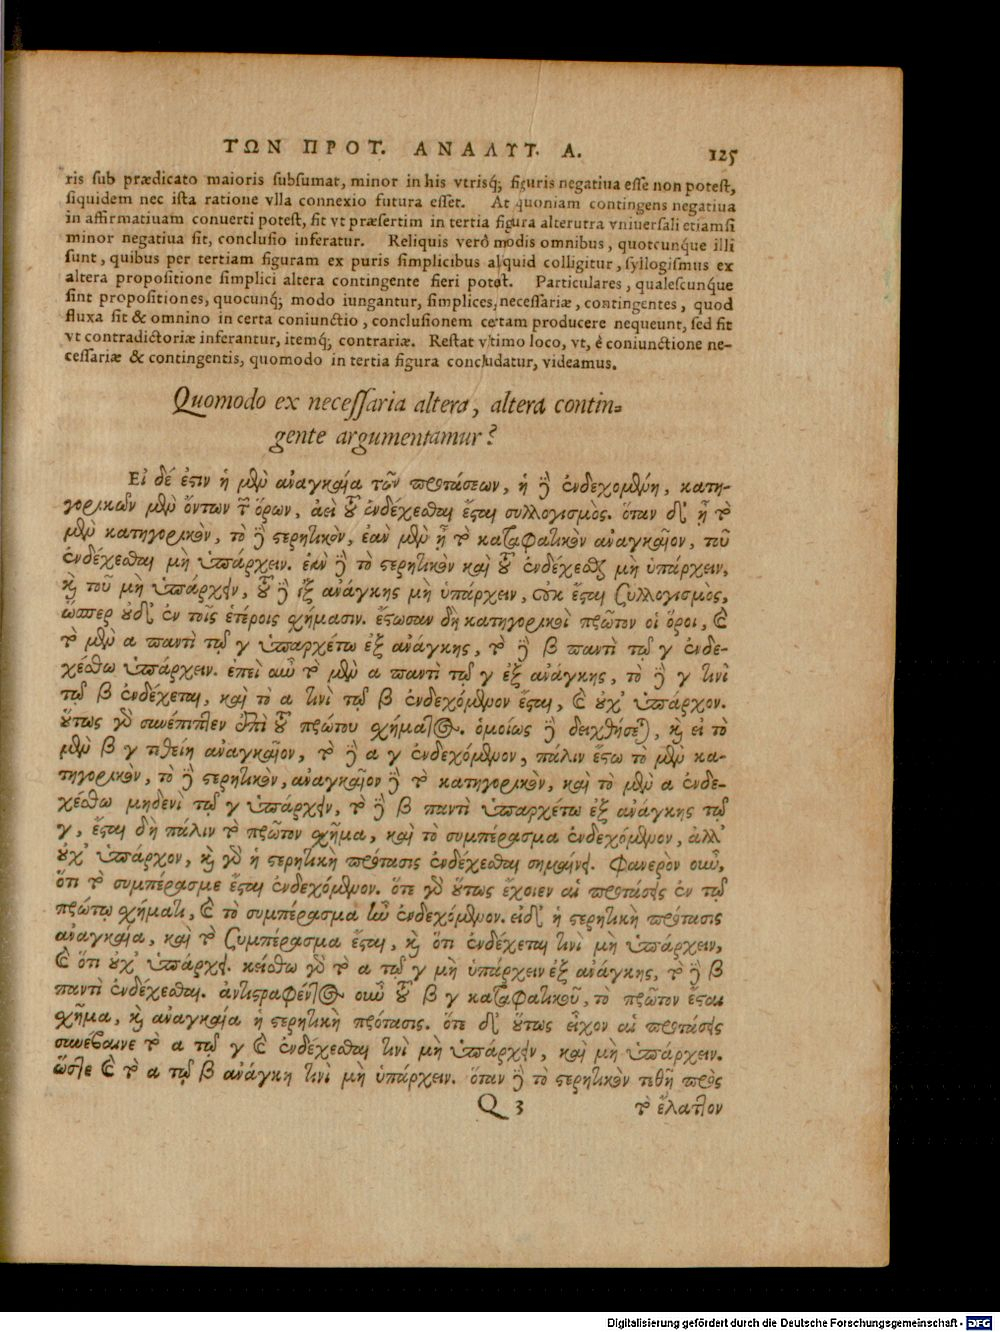 ΤΩΝ ΠΡΟΤ. ΑΝΑΛΥΤ. Α. 125
ris sub prædicato maioris subsumat, minor in his vtrisq; figuris negatiua esse non potest,
siquidem nec ista ratione vlla connexio futura esset. At quoniam contingens negatiua
in affirmatiuam conuerti potest, fit vt præsertim in tertia figura alterutra vniuersali etiamsi
minor negatiua sit, conclusio inferatur. Reliquis verò modis omnibus, quotcunque illi
sunt, quibus per tertiam figuram ex puris simplicibus aliquid colligitur, syllogismus ex
altera propositione simplici altera contingente fieri potest. Particulares, qualescunque
sint propositiones, quocunq; modo iungantur, simplices, necessariæ, contingentes, quod
fluxa sit & omnino in certa coniunctio, conclusionem certam producere nequeunt, sed fit
vt contradictoriæ inferantur, itemq; contrariæ. Restat vltimo loco, vt, è coniunctione ne-
cessariæ & contingentis, quomodo in tertia figura concludatur, videamus.
Quomodo ex necessaria altera, altera contin-
gente argumentamur?
Εἰ δέ ἐστιν ἡ μὲν ἀναγκαία τῶν προτάσεων, ἡ δὲ ἐνδεχομένη, κατη-
γορικῶν μὲν ὄντων τῶν ὅρων, ἀεὶ τοῦ ἐνδέχεσθαι ἔσται συλλογισμός. ὅταν δ' ᾖ τὸ
μὲν κατηγορικὸν, τὸ δὲ στερητικὸν, ἐὰν μὲν ᾖ τὸ καταφατικὸν ἀναγκαῖον, τοῦ
ἐνδέχεσθαι μὴ ὑπάρχειν. ἐὰν δὲ τὸ στερητικὸν καὶ τοῦ ἐνδέχεσθαι μὴ ὑπάρχειν,
καὶ τοῦ μὴ ὑπάρχειν, τοῦ δὲ ἐξ ἀνάγκης μὴ ὑπάρχειν, οὐκ ἔσται συλλογισμὸς,
ὥσπερ οὐδ' ἐν τοῖς ἑτέροις σχήμασιν. ἔστωσαν δὴ κατηγορικοὶ πρῶτον οἱ ὅροι, καὶ
τὸ μὲν α παντὶ τῷ γ ὑπαρχέτω ἐξ ἀνάγκης, τὸ δὲ β παντὶ τῷ γ ἐνδε-
χέσθω ὑπάρχειν. ἐπεὶ οὖν τὸ μὲν α παντὶ τῷ γ ἐξ ἀνάγκης, τὸ δὲ γ τινὶ
τῷ β ἐνδέχεται, καὶ τὸ α τινὶ τῷ β ἐνδεχόμενον ἔσται, καὶ οὐχ' ὑπάρχον.
οὕτως γὰρ συνέπιπτεν ἐπὶ τοῦ πρώτου σχήματος. ὁμοίως δὲ δειχθήσεται, καὶ εἰ τὸ
μὲν β γ τιθείη ἀναγκαῖον, τὸ δὲ α γ ἐνδεχόμενον, πάλιν ἔστω τὸ μὲν κα-
τηγορικὸν, τὸ δὲ στερητικὸν, ἀναγκαῖον δὲ τὸ κατηγορικὸν, καὶ τὸ μὲν α ἐνδε-
χέσθω μηδενὶ τῷ γ ὑπάρχειν, τὸ δὲ β παντὶ ὑπαρχέτω ἐξ ἀνάγκης τῷ
γ, ἔσται δὴ πάλιν τὸ πρῶτον σχῆμα, καὶ τὸ συμπέρασμα ἐνδεχόμενον, ἀλλ'
οὐχ' ὑπάρχον, καὶ γὰρ ἡ στερητικὴ πρότασις ἐνδέχεσθαι σημαίνει. Φανερὸν οὖν,
ὅτι τὸ συμπέρασμε ἔσται ἐνδεχόμενον. ὅτε γὰρ οὕτως ἔχοιεν αἱ προτάσεις ἐν τῷ
πρώτῳ σχήματι, καὶ τὸ συμπέρασμα ἦν ἐνδεχόμενον. εἰδ' ἡ στερητικὴ πρότασις
ἀναγκαία, καὶ τὸ συμπέρασμα ἔσται, καὶ ὅτι ἐνδέχεται τινὶ μὴ ὑπάρχειν,
καὶ ὅτι οὐχ' ὑπάρχει. κείσθω γὰρ τὸ α τῷ γ μὴ ὑπάρχειν ἐξ ἀνάγκης, τὸ δὲ β
παντὶ ἐνδέχεσθαι. ἀντιστραφέντος οὖν τοῦ β γ καταφατικοῦ, τὸ πρῶτον ἔσται
σχῆμα, καὶ ἀναγκαία ἡ στερητικὴ πρότασις. ὅτε δ' οὕτως εἶχον αἱ προτάσεις
συνέβαινε τὸ α τῷ γ καὶ ἐνδέχεσθαι τινὶ μὴ ὑπάρχειν, καὶ μὴ ὑπάρχειν.
ὥστε καὶ τὸ α τῷ β ἀνάγκη τινὶ μὴ ὑπάρχειν. ὅταν δὲ τὸ στερητικὸν τεθῇ πρὸς
Q 3 τὸ ἔλαττον
Digitalisierung gefördert durch die Deutsche Forschungsgemeinschaft - DFG